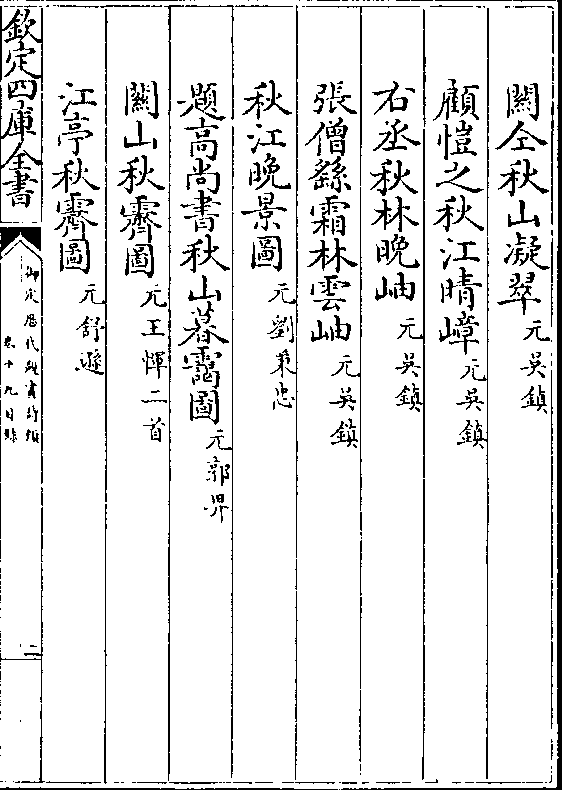 關仝秋山凝翠 元吳鎮
顧愷之秋江晴嶂 元吳鎮
右丞秋林晚岫 元吳鎮
張僧繇霜林雲岫 元吳鎮
秋江晚景圖 元劉秉忠
題高尚書秋山暮靄圖 元郭畀
關山秋霽圖 元王惲二首
江亭秋霽圖 元舒遜
欽定四庫全書
御定歷代題畫詩類
卷十九目錄
二